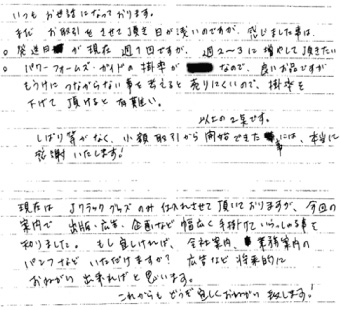 いつもお世話になっております。
まだ お取引をさせて頂き日が浅いのですが、感じました事は、
○ 発送日が現在 週1回ですが、週2~3に増やして頂きたい
○ パワーフォームズ・ガイドの掛率が なので、良いお品ですが
もうけにつながらない事を考えると売りにくいので、掛率を
下げて頂けると有難い。
以上の2点です。
しばり等がなく、小額取引から開始できた事には、本当に
感謝いたします!
現在は Jクラックグッズのみ仕入れさせて頂いておりますが、今回の
案内で 出版・広告、企画など幅広く手掛けていらっしゃる事を
知りました。もし宜しければ、会社案内、業務案内の
パンフなど いただけますか? 広告など将来的に
おねがい出来ればと思います。
これからも どうぞ宜しくおねがい致します!